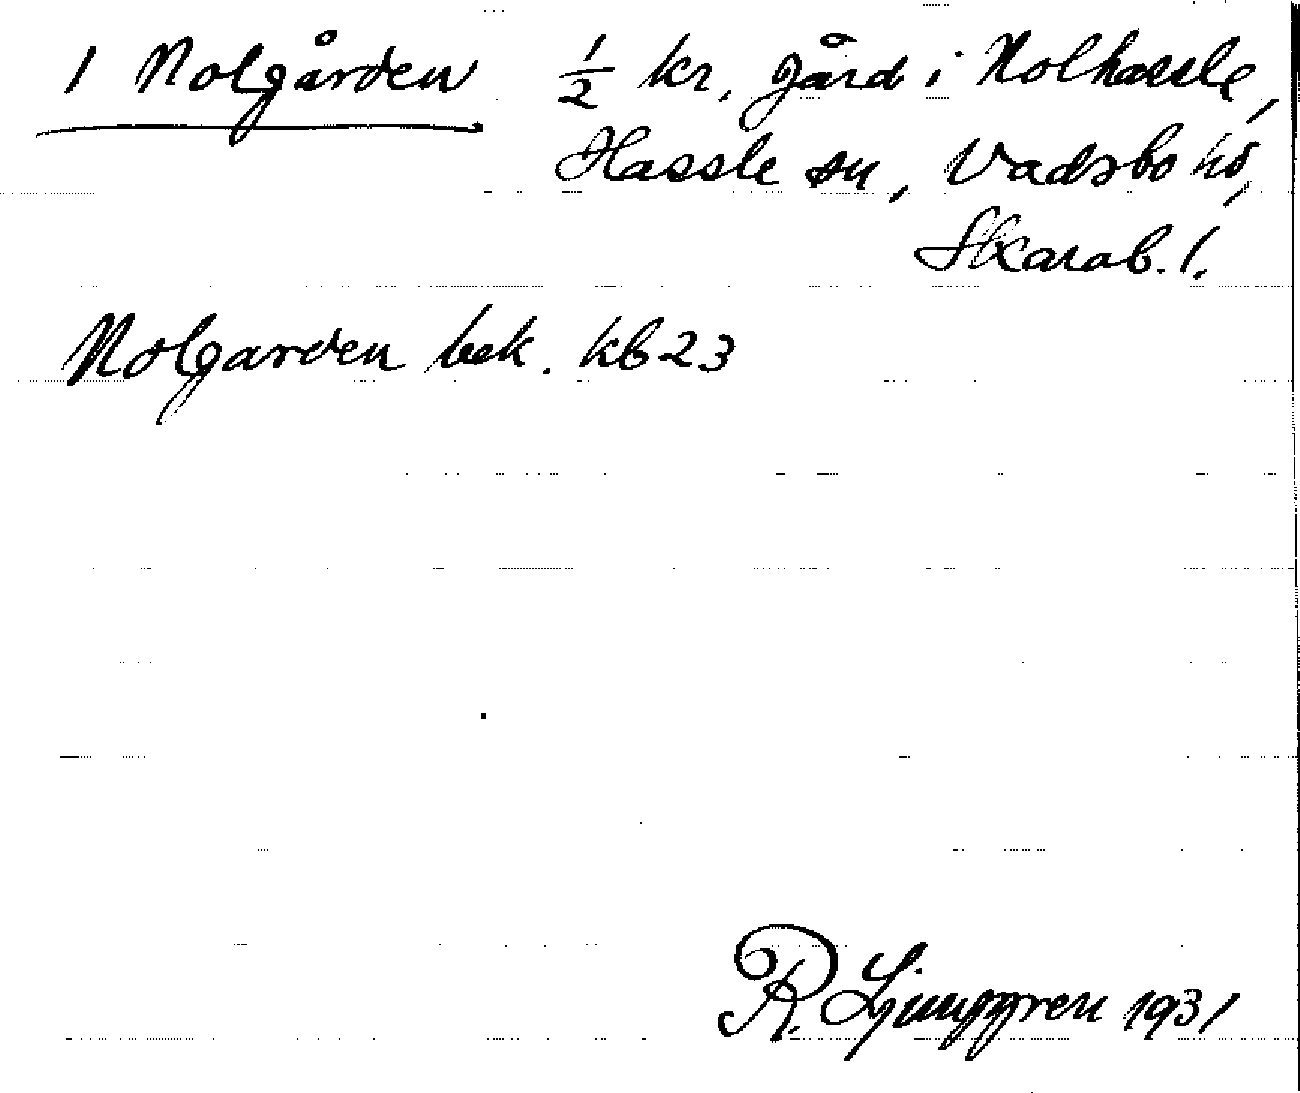 1 Nolgården ½ kr. gård i Nolhassle,
Hassle sn, Vadsbo hd,
Skarab. l.
Nolgarden bek. kb 23
R. Ljunggren 1931